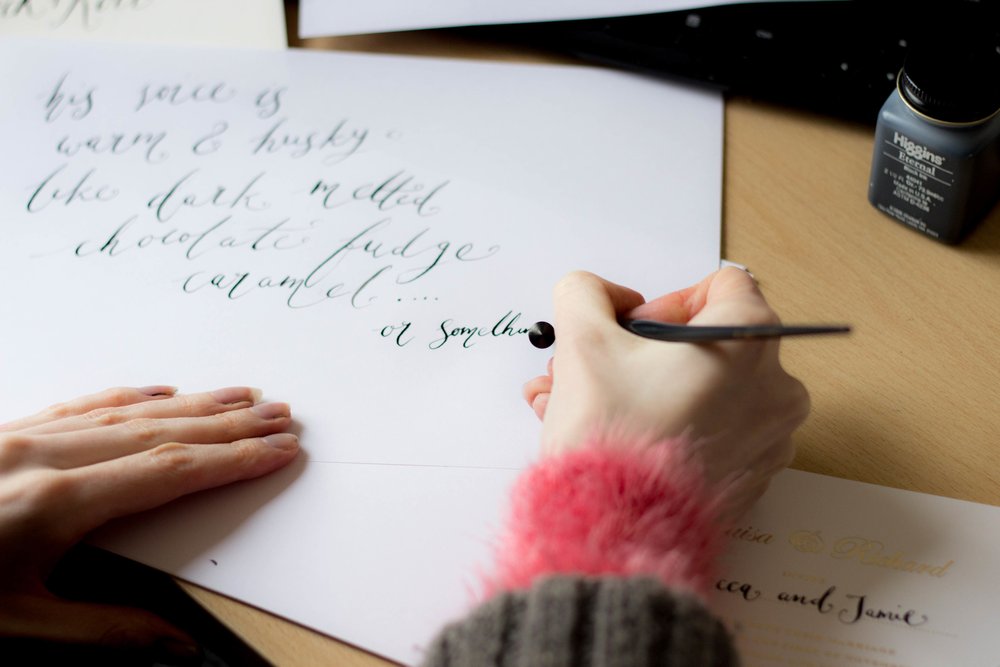 his voice is
warm & husky
like dark melted
chocolate fudge
caramel....
or somethin
Higgins
Eternal
Black Ink
MADE IN
U.S.A.
and Jamie